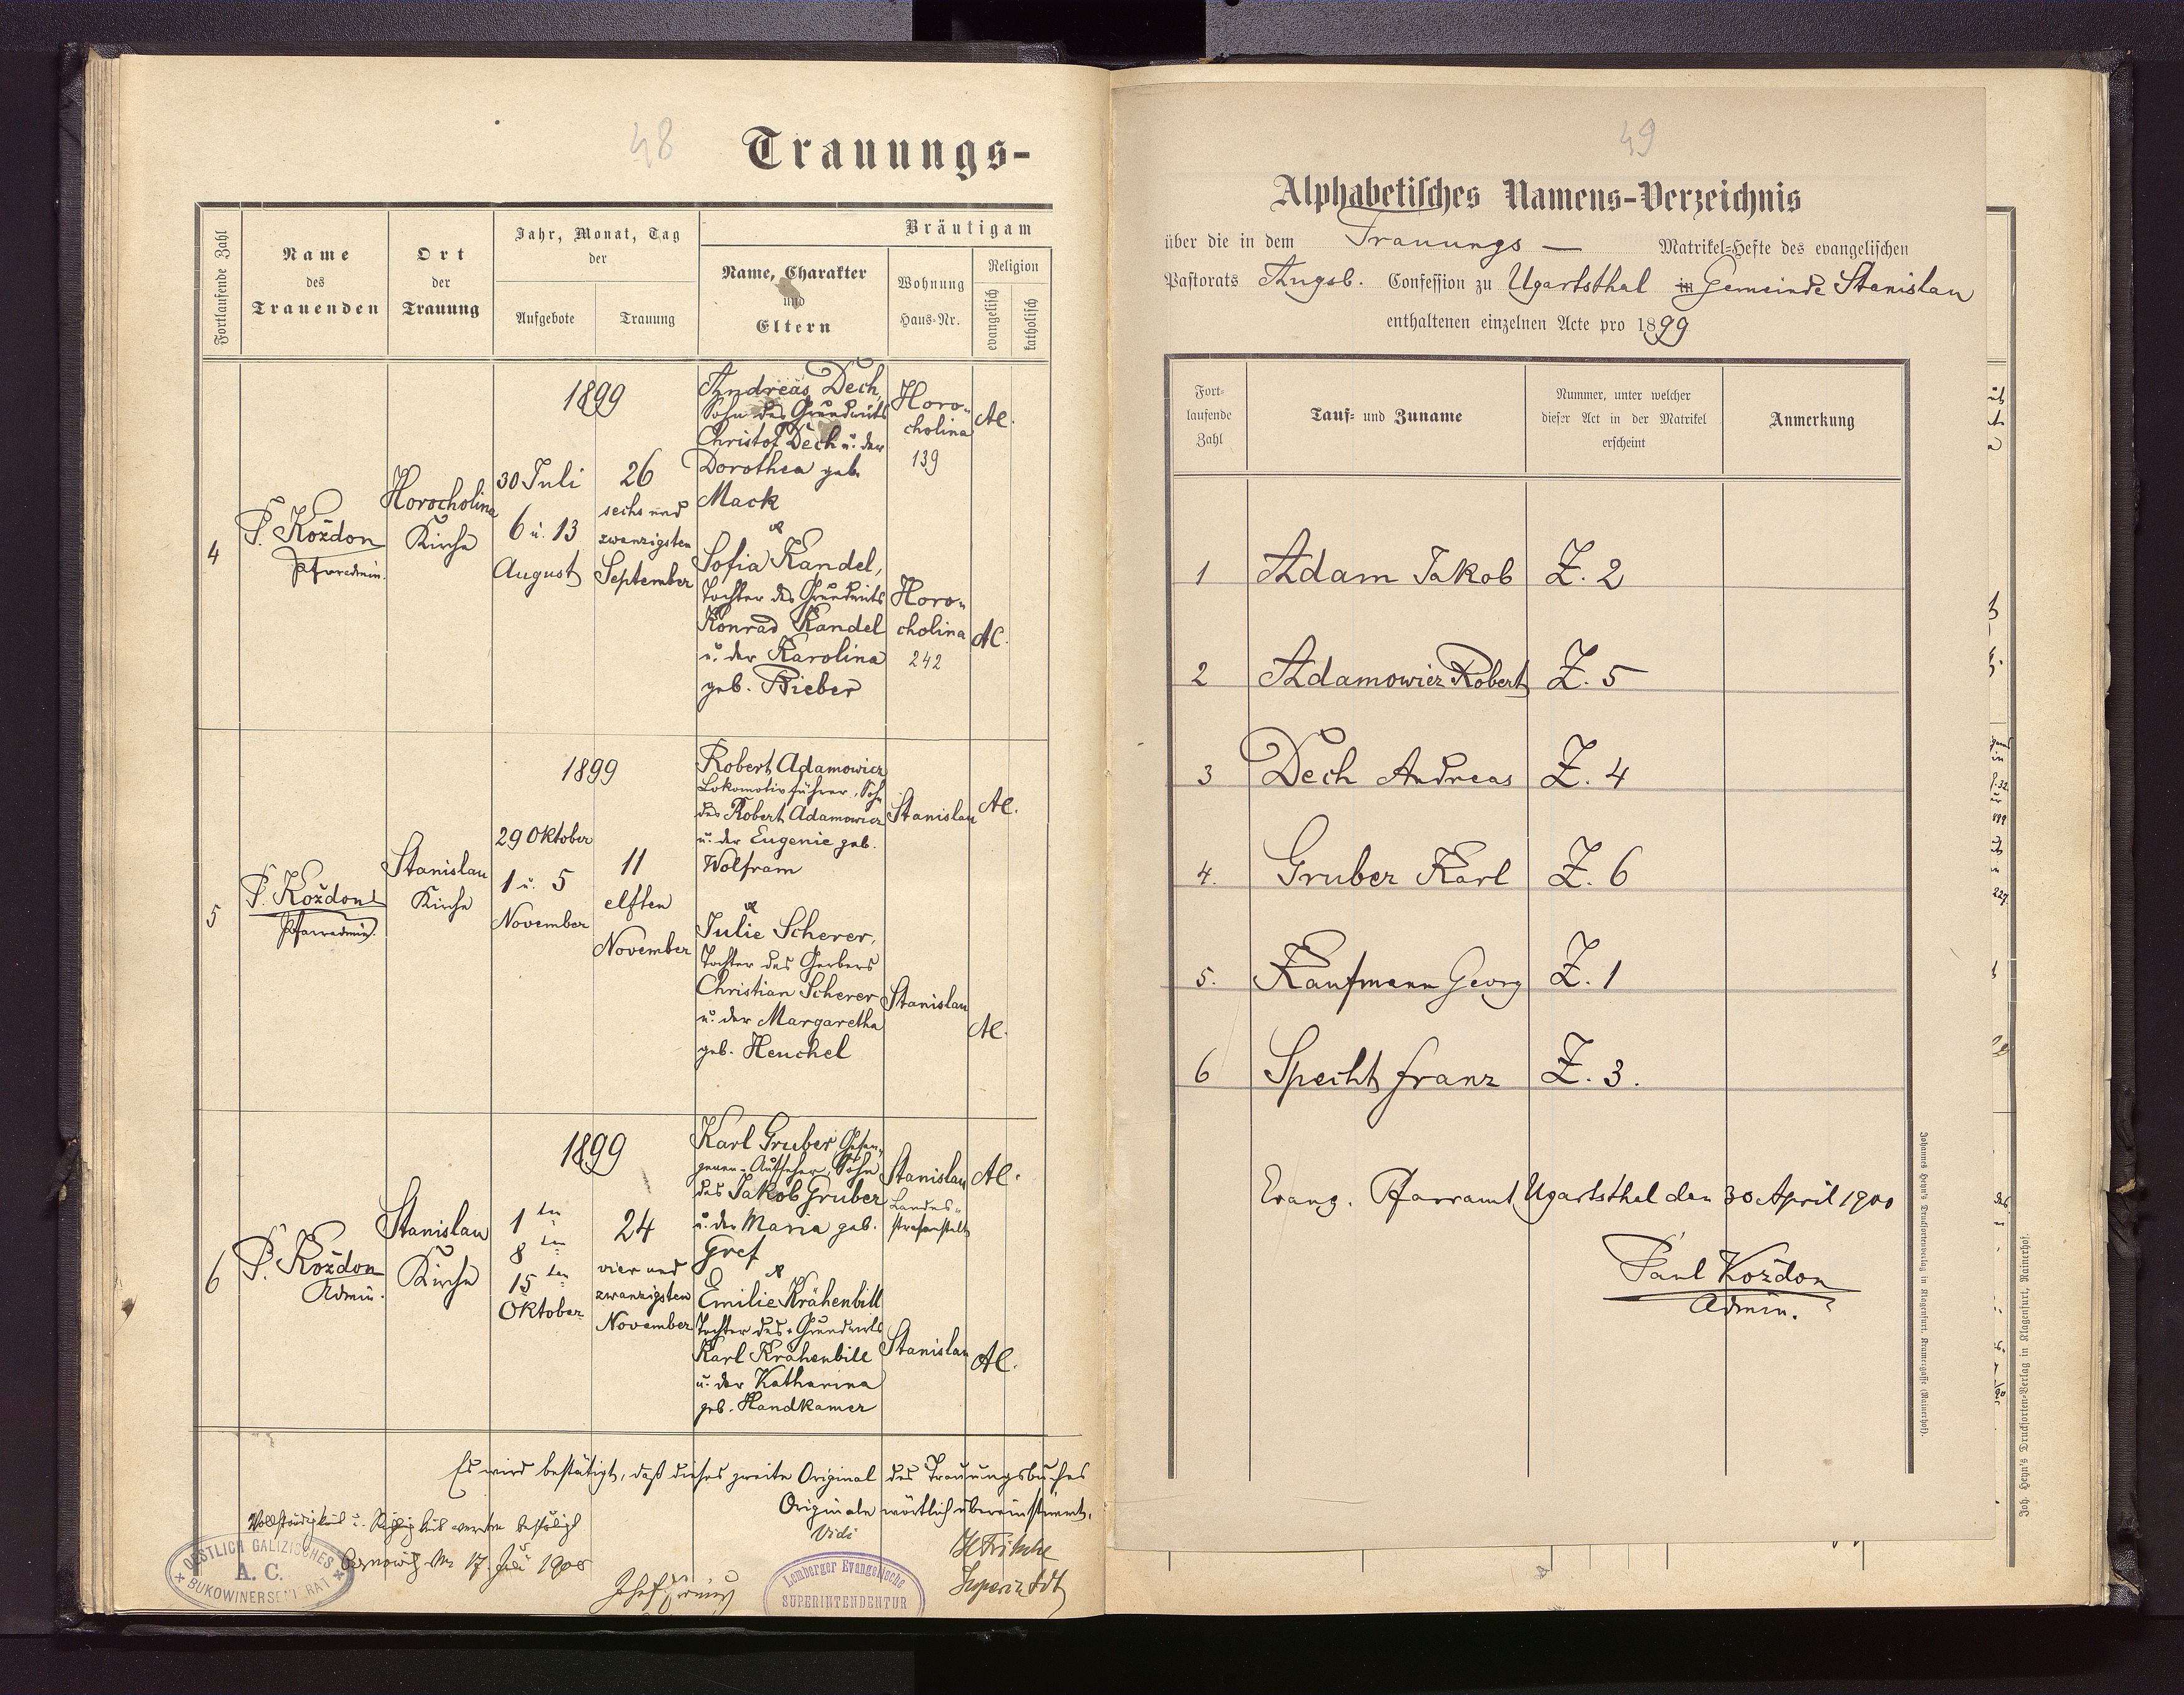 48
Trauungs-
Fortlaufende Zahl
Name
des
Trauenden
Ort
der
Trauung
Jahr, Monat, Tag
der
Aufgebote
Trauung
Bräutigam
Name, Charakter
und
Eltern
Wohnung
Haus-Nr.
Religion
evangelisch
katholisch
4
P. Kożdon
Pfarradmin.
Horocholina
Kirche
1899
30 Juli
6 u. 13
August
26
sechs und
zwanzigsten
September
Andreas Dech,
Sohn des Grundwirts
Christof Dech u. der
Dorothea geb.
Mack
Horo-
cholina
139
AC.
Sofia Kandel,
Tochter des Grundwirts
Konrad Kandel
u. der Karolina
geb. Bieber
Horo-
cholina
242
AC.
5
P. Kożdon
Pfarradmin.
Stanislau
Kirche
1899
29 Oktober
1 u. 5
November
11
elften
November
Robert Adamowicz
Lokomotivführer, Sohn
des Robert Adamowicz
u. der Eugenie geb.
Wolfram
Stanislau
AC.
Julie Scherer,
Tochter des Gerbers
Christian Scherer
u. der Margaretha
geb. Henchel
Stanislau
AC.
6
P. Kożdon
Admin.
Stanislau
Kirche
1899
1 ten
8 ten
15 ten
Oktober
24
vier und
zwanzigsten
November
Karl Gruber Gefan-
genen-Aufseher, Sohn
des Jakob Gruber
u. der Maria geb.
Gref
Stanislau
Landes-
strafanstalt
AC.
Emilie Krähenbill
Tochter des Grundwirts
Karl Krähenbill
u. der Katharina
geb. Handkamer
Stanislau
AC.
Es wird bestätigt, daß dieses zweite Original des Trauungsbuches
Originale wörtlich übereinstimmt.
Vidi
Vollständigkeit u. Richtigkeit werden bestätigt
17. Juli 1900
Superintdt
OESTLICH GALIZISCHES
A. C.
BUKOWINER SENIORAT
Lemberger Evangelische
SUPERINTENDENTUR
49
Alphabetisches Namens-Verzeichnis
über die in dem Trauungs — Matrikel-Hefte des evangelischen
Pastorats Augsb. Confession zu Ugartsthal in Gemeinde Stanislau
enthaltenen einzelnen Acte pro 1899
Fort-
laufende
Zahl
Tauf- und Zuname
Nummer, unter welcher
dieser Act in der Matrikel
erscheint
Anmerkung
1 Adam Jakob Z. 2
2 Adamowicz Robert Z. 5
3 Dech Andreas Z. 4
4. Gruber Karl Z. 6
5. Kaufmann Georg Z. 1
6 Specht Franz Z. 3.
Evang. Pfarramt Ugartsthal den 30 April 1900
Paul Kożdon
Admin.
Johannes Heyn's Drucksortenverlag in Klagenfurt, Kramergasse (Rainerhof).
Joh. Heyn's Drucksorten-Verlag in Klagenfurt, Rainerhof.